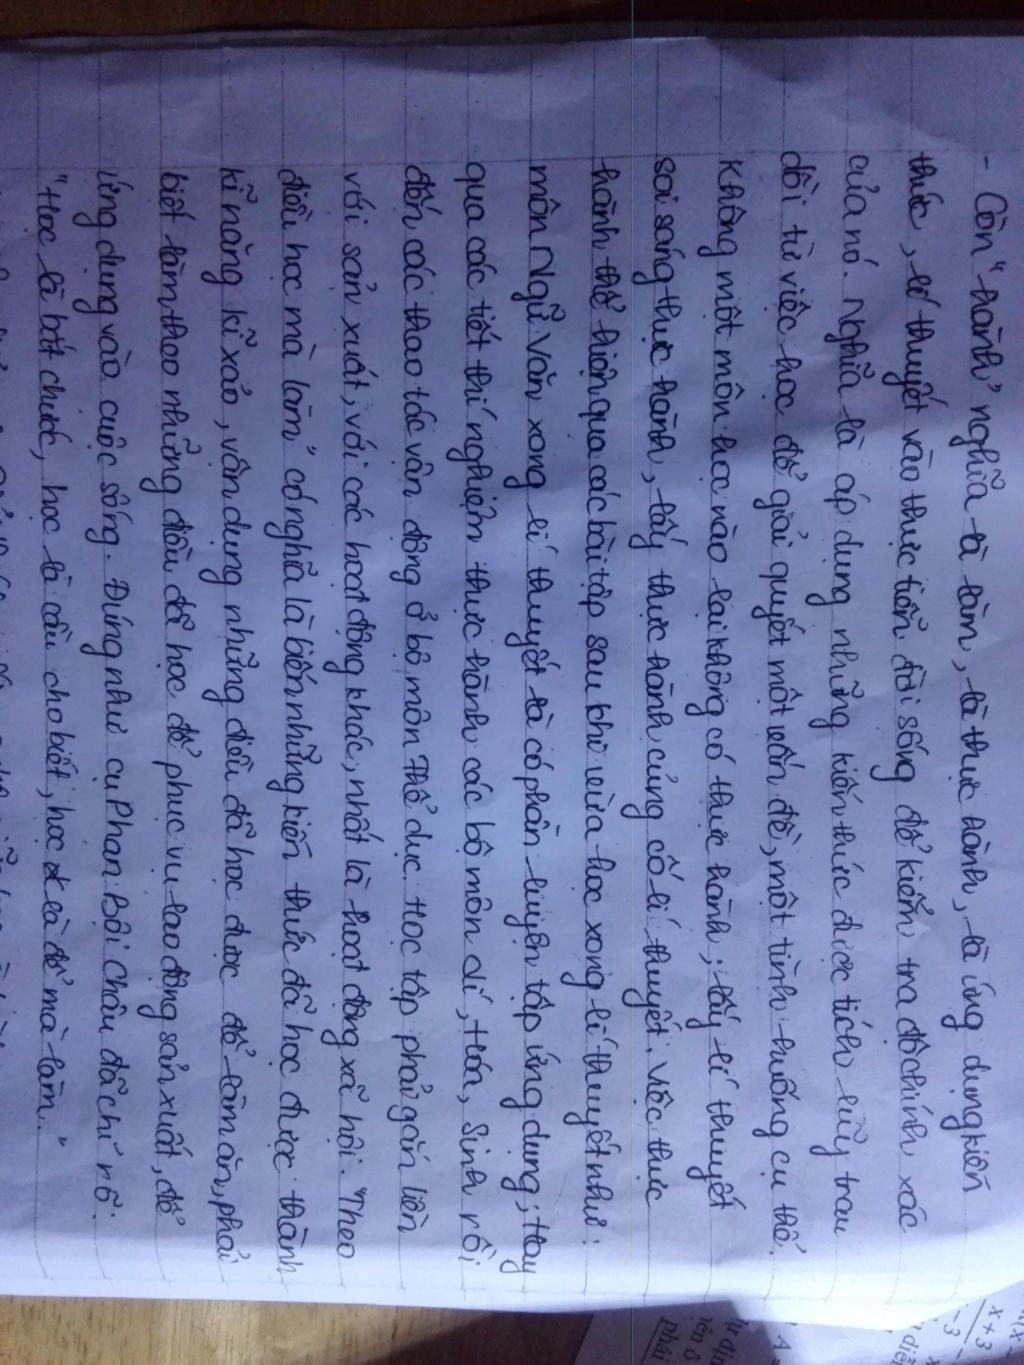 - Còn "hành" nghĩa là làm, là thực hành, là ứng dụng kiến
thức, lí thuyết vào thực tiễn đời sống để kiểm tra độ chính xác
của nó. Nghĩa là áp dụng những kiến thức được tích lũy trau
dồi từ việc học để giải quyết một vấn đề, một tình huống cụ thể.
Không một môn học nào lại không có thực hành; lấy lí thuyết
soi sáng thực hành, lấy thực hành củng cố lí thuyết. Việc thực
hành thể hiện qua các bài tập sau khi vừa học xong lí thuyết như:
môn Ngữ Văn xong lí thuyết là có phần luyện tập ứng dụng; Hay
qua các tiết thí nghiệm thực hành các bộ môn Lí, Hóa, Sinh rồi
đến các thao tác vận động ở bộ môn Thể dục. Học tập phải gắn liền
với sản xuất, với các hoạt động khác, nhất là hoạt động xã hội. "Theo
điều học mà làm" có nghĩa là biến những kiến thức đã học được thành
kĩ năng kĩ xảo, vận dụng những điều đã học được để làm ăn, phải
biết làm theo những điều đã học để phục vụ lao động sản xuất, để
ứng dụng vào cuộc sống. Đúng như cụ Phan Bội Châu đã chỉ rõ:
"Học là bắt chước, học là cầu cho biết, học là để mà làm."
x+3
-3
Phải